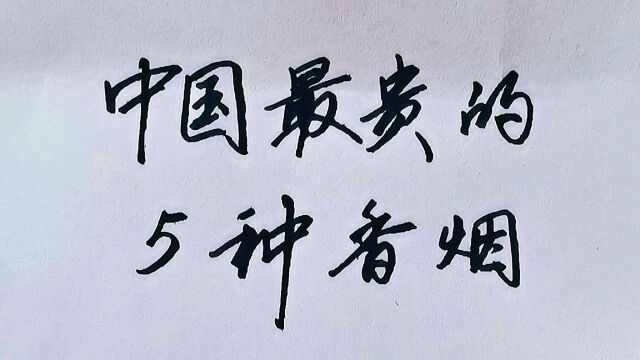 中国最贵的
5种香烟